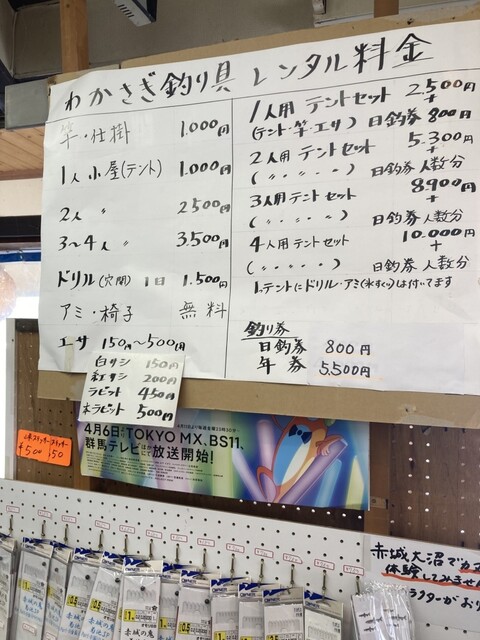 わかさぎ釣り具 レンタル料金
竿・仕掛 1.000円
1人 小屋(テント) 1.000円
2人 〃 2500円
3~4人 〃 3.500円
ドリル(穴開) 1日 1.500円
アミ・椅子 無料
エサ 150円~500円
白サシ 150円
紅サシ 200円
ラビット 450円
本ラビット 500円
1人用 テントセット 2.500円
+
(テント・竿・エサ) 日釣券 800円
2人用 テントセット 5.300円
+
(〃 〃 〃) 日釣券 人数分
3人用 テントセット 8.900円
+
(〃 〃 〃) 日釣券 人数分
4人用 テントセット 10.000円
+
(〃 〃 〃) 日釣券 人数分
釣り券
日釣券 800円
年券 5,500円
4月6日 TOKYO MX、BS11、
群馬テレビ ほかにて 放送開始!
赤城大沼で
体験してみません